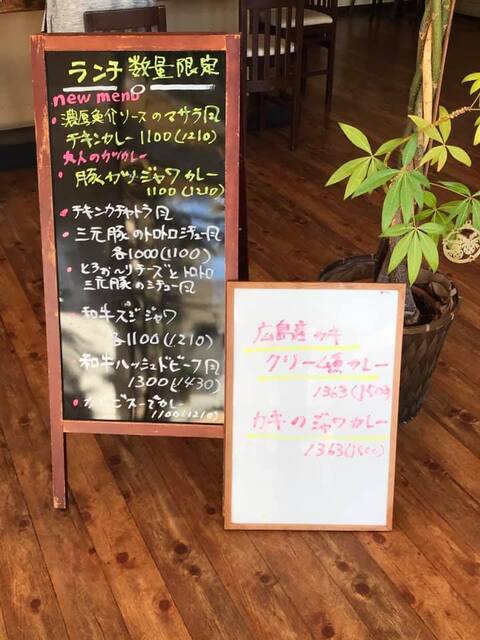 ランチ 数量限定
new menu
・濃厚魚介ソースのマサラ風
チキンカレー 1100(1210)
大人のガツカレー
・豚ガツジャワカレー
1100(1210)
・チキンカチャトラ風
・三元豚のトロトロシチュー風
各1000(1100)
・とろお~りチーズとトロトロ
三元豚のシチュー風
和牛スジジャワ
各1100(1210)
和牛ハッシュドビーフ風
1300(1430)
カレー
1100(1210)
広島産カキ
クリーム カレー
1363(1500)
カキのジャワカレー
1363(1500)